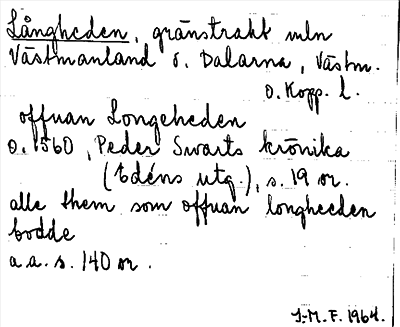 Långheden, gränstrakt mln
Västmanland o. Dalarna, Västm.
o. Kopp. l.
offuan Longeheden
o. 1560, Peder Swarts krönika
(Edéns utg.), s. 19 or.
alle them som offuan longheeden
bodde
a.a. s. 140 or.
I.M.F. 1964.